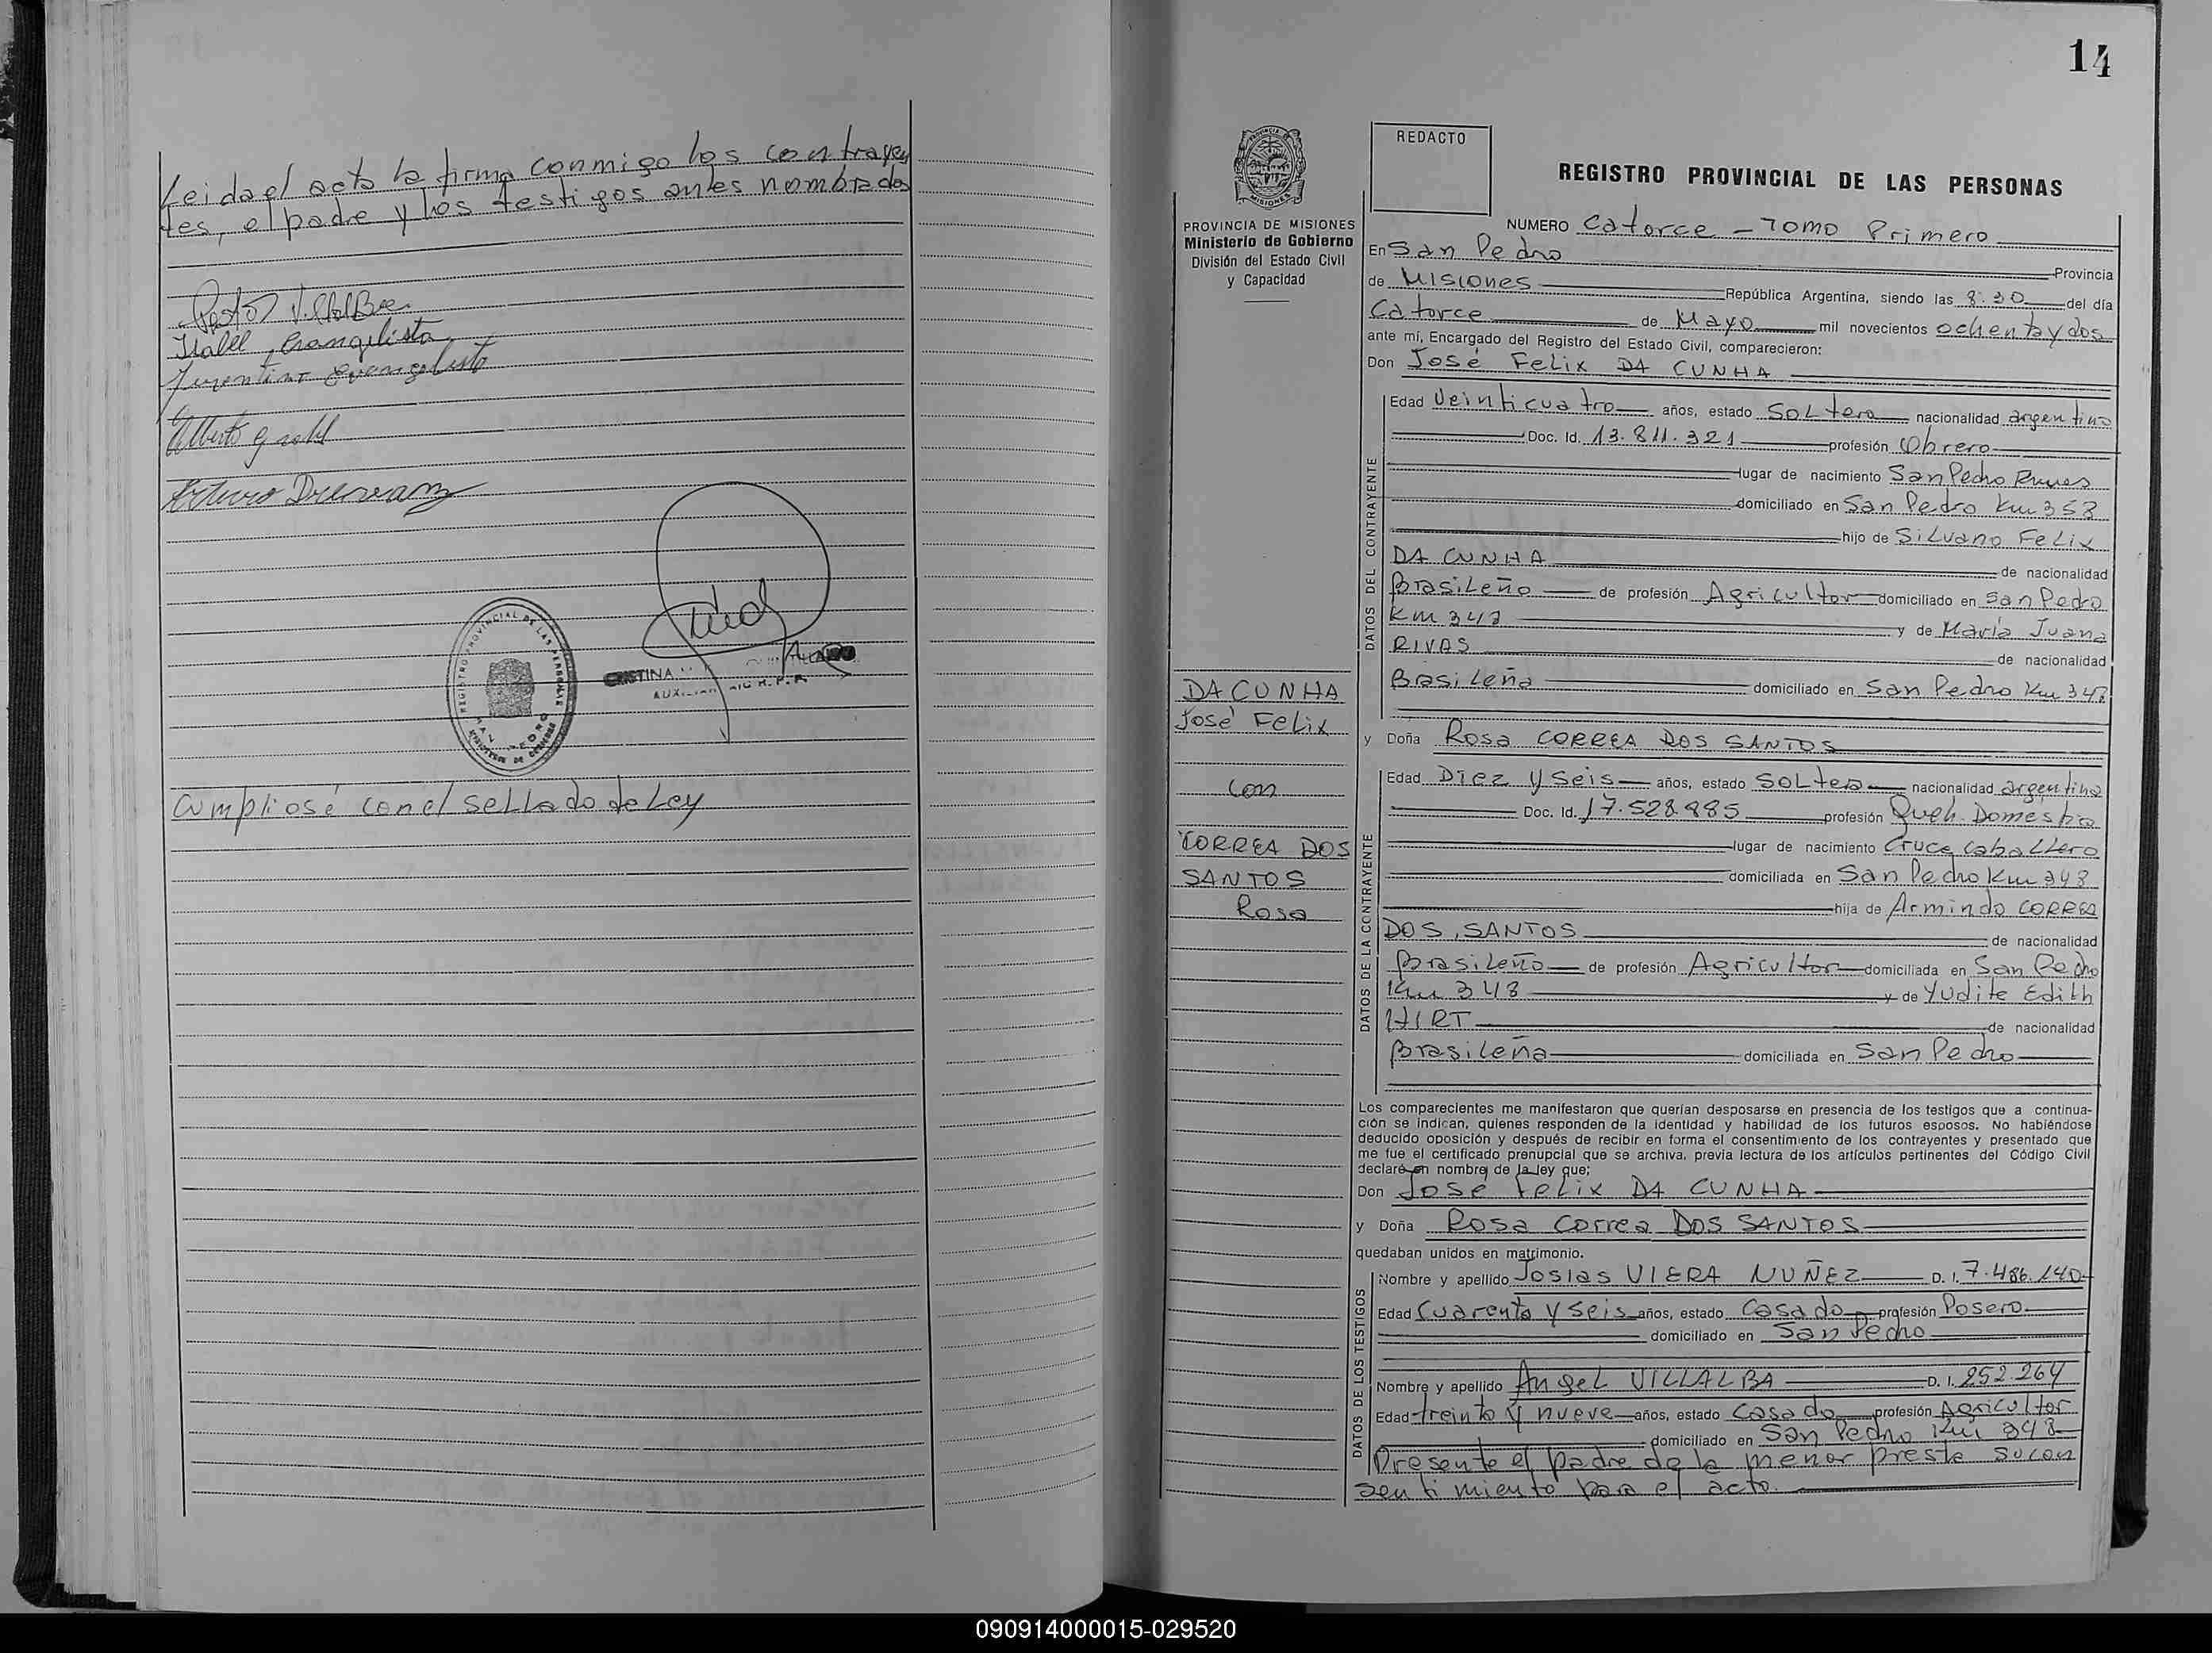 Leida el acta la firma conmigo los contrayen
tes, el padre y los testigos antes nombrados
Isabel Evangelista
Evangelista
Alberto
Arturo
REGISTRO PROVINCIAL DE LAS PERSONAS
SAN PEDRO
MINISTERIO DE GOBIERNO
CRISTINA
Cumpliosé con el sellado de Ley
14
PROVINCIA DE MISIONES
Ministerio de Gobierno
División del Estado Civil
y Capacidad
DA CUNHA
José Felix
con
CORREA DOS
SANTOS
Rosa
REDACTO
REGISTRO PROVINCIAL DE LAS PERSONAS
NUMERO Catorce - Tomo Primero
En San Pedro Provincia
de Misiones República Argentina, siendo las 8:30 del día
Catorce de Mayo mil novecientos ochenta y dos
ante mí, Encargado del Registro del Estado Civil, comparecieron:
Don José Felix DA CUNHA
DATOS DEL CONTRAYENTE
Edad Veinticuatro años, estado Soltero nacionalidad argentino
Doc. Id. 13.811.321 profesión Obrero
lugar de nacimiento San Pedro
domiciliado en San Pedro Km 353
hijo de Silvano Felix
DA CUNHA de nacionalidad
Brasileño de profesión Agricultor domiciliado en San Pedro
Km 348 y de María Juana
RIVAS de nacionalidad
Brasileña domiciliado en San Pedro Km 348
y Doña Rosa CORREA DOS SANTOS
DATOS DE LA CONTRAYENTE
Edad Diez y Seis años, estado Soltera nacionalidad argentina
Doc. Id. 17.528.985 profesión Queh. Domestica
lugar de nacimiento Cruce Caballero
domiciliada en San Pedro Km 348
hija de Armindo CORREA
DOS SANTOS de nacionalidad
Brasileño de profesión Agricultor domiciliada en San Pedro
Km 348 y de Yudite Edith
HIRT de nacionalidad
Brasileña domiciliada en San Pedro
Los comparecientes me manifestaron que querían desposarse en presencia de los testigos que a continua-
ción se indican, quienes responden de la identidad y habilidad de los futuros esposos. No habiéndose
deducido oposición y después de recibir en forma el consentimiento de los contrayentes y presentado que
me fue el certificado prenupcial que se archiva, previa lectura de los artículos pertinentes del Código Civil
declaré en nombre de la ley que:
Don José Felix DA CUNHA
y Doña Rosa Correa DOS SANTOS
quedaban unidos en matrimonio.
DATOS DE LOS TESTIGOS
Nombre y apellido Josias VIERA NUÑEZ D. I. 7.486.140
Edad Cuarenta y Seis años, estado Casado profesión Posero
domiciliado en San Pedro
Nombre y apellido Angel VILLALBA D. I. 252.264
Edad treinta y nueve años, estado Casado profesión Agricultor
domiciliado en San Pedro Km 348
Presente el padre de la menor presta su con
sentimiento para el acto.
090914000015-029520